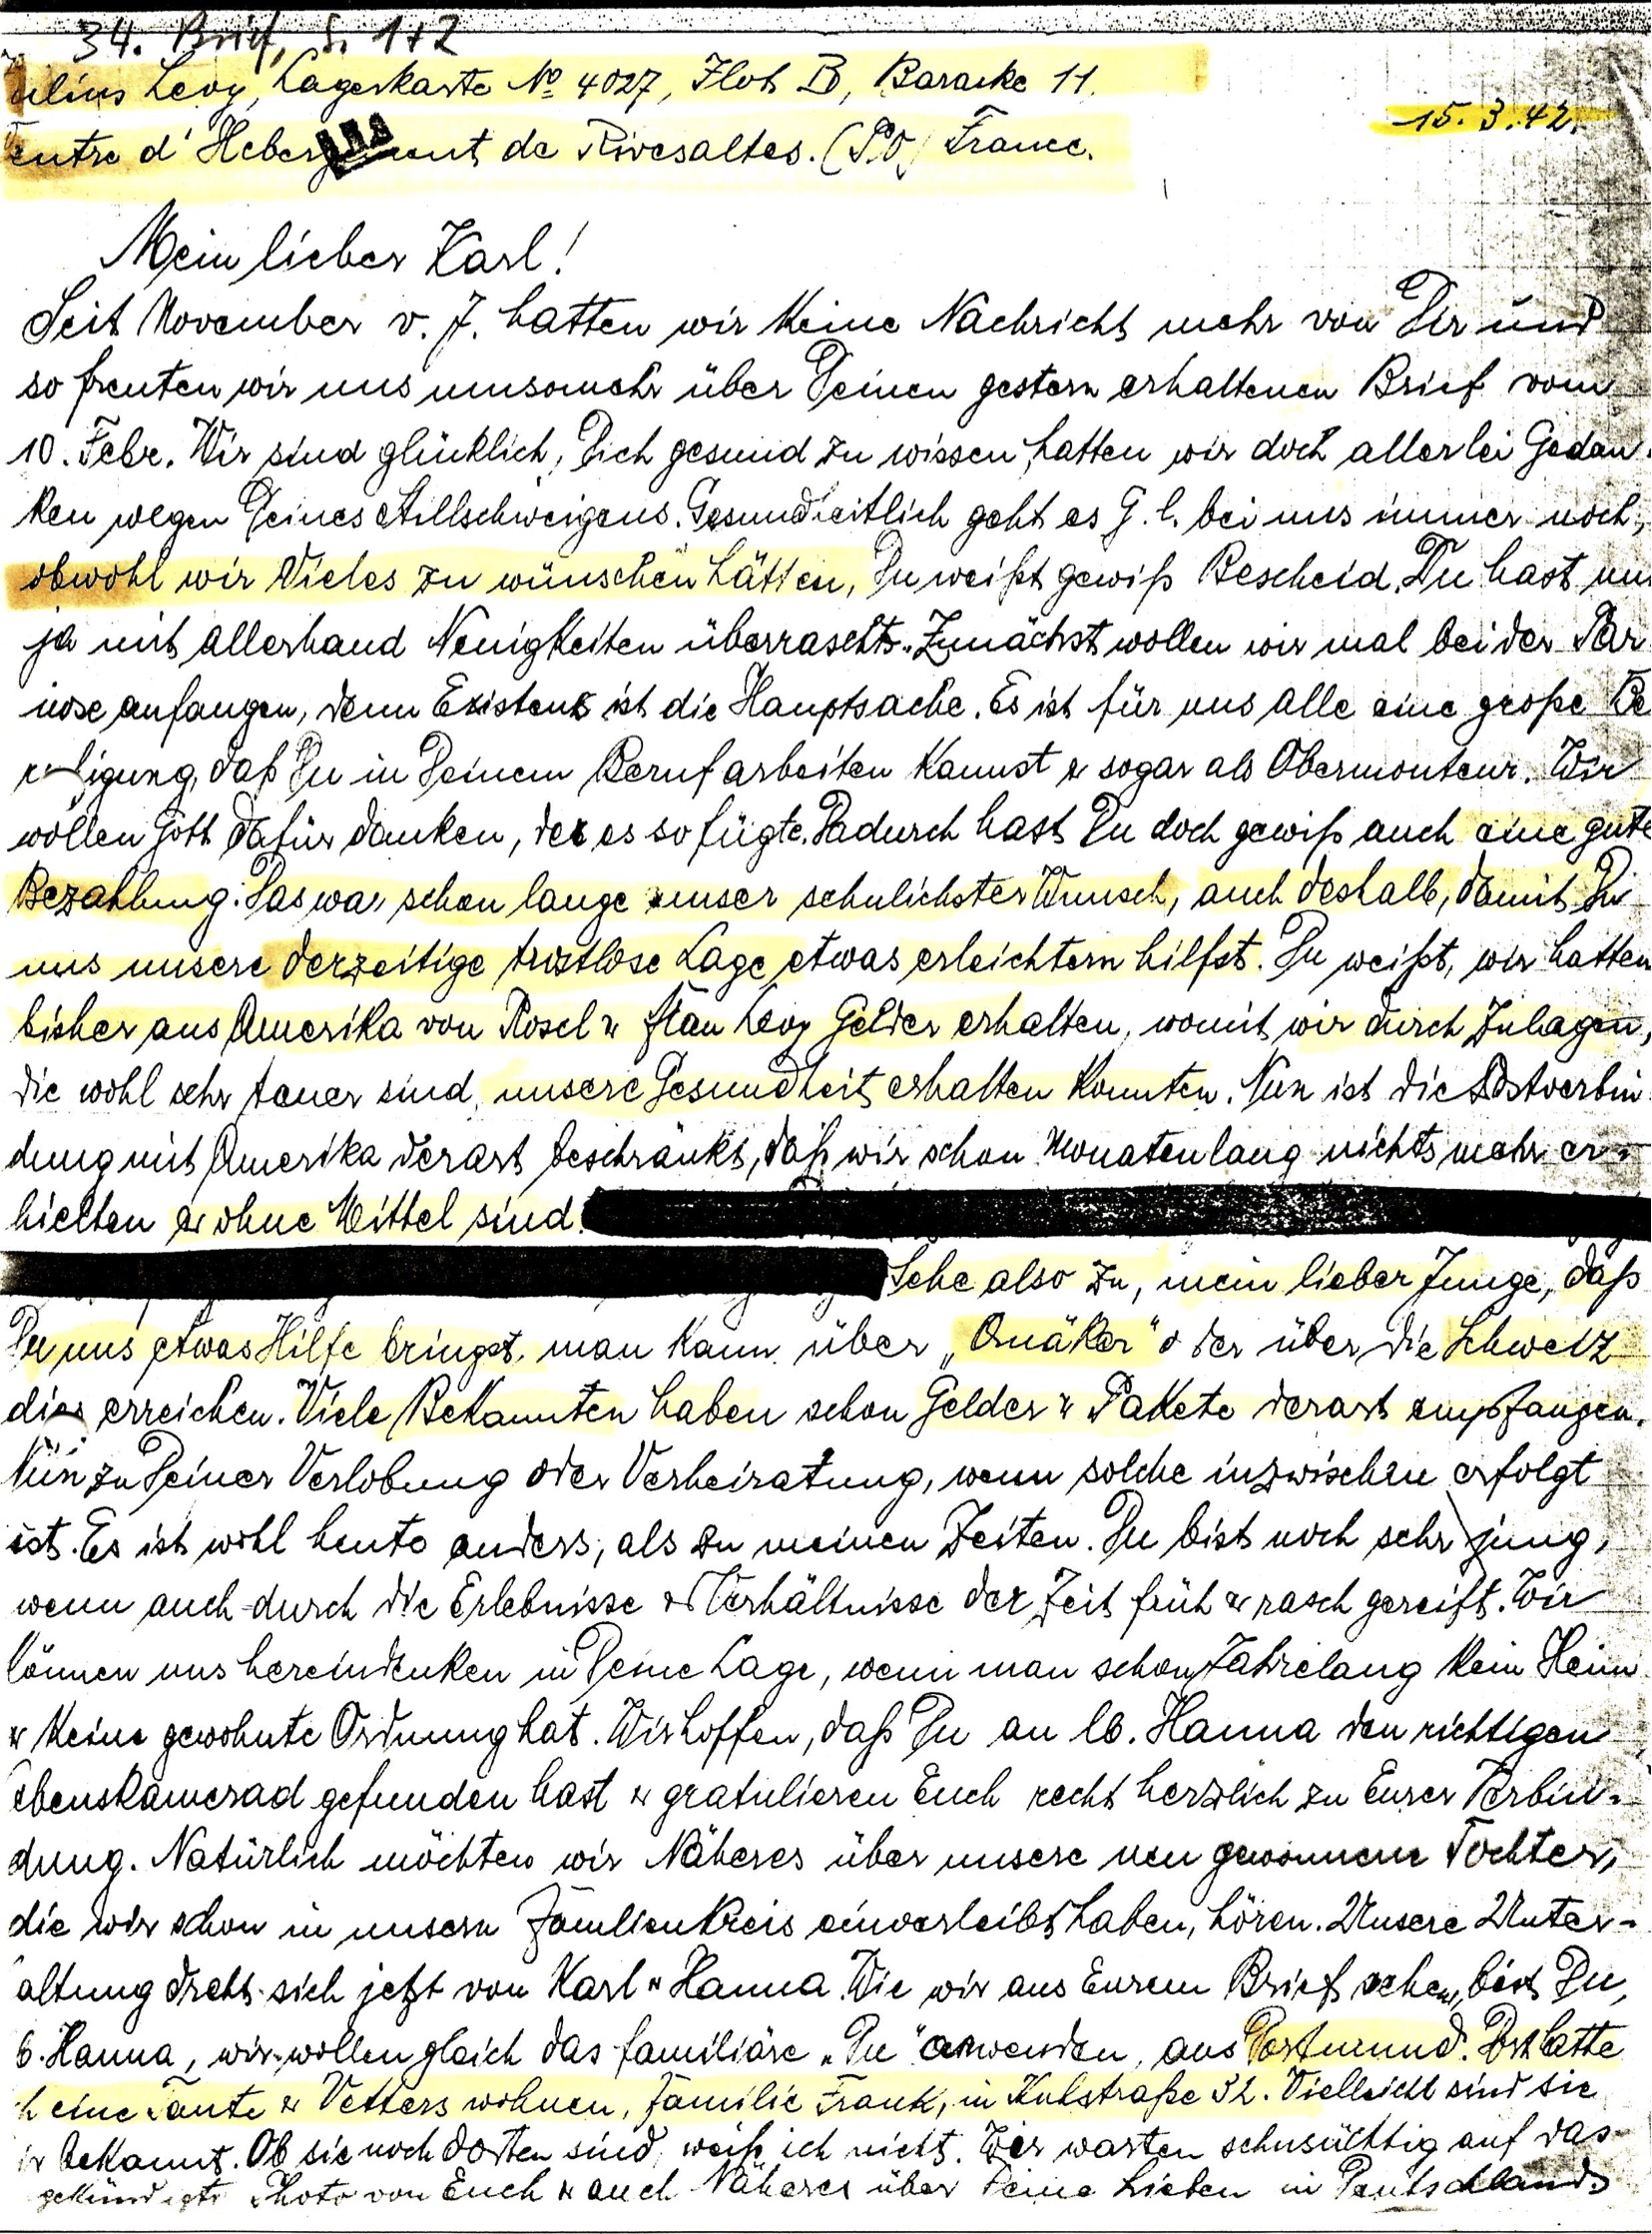 34. Brief, S. 1+2
ulius Levy, Lagerkarte № 4027, Ilot B, Baracke 11.
15. 3. 42.
entre d'Hebergement de Rivesaltes. (P.O.) France.
Mein lieber Karl!
Seit November v. J. hatten wir keine Nachricht mehr von Dir und
so freuten wir uns umsomehr über Deinen gestern erhaltenen Brief vom
10. Febr. Wir sind glücklich, Dich gesund zu wissen, hatten wir doch allerlei Gedan-
ken wegen Deines Stillschweigens. Gesundheitlich geht es G. l. bei uns immer noch,
obwohl wir Vieles zu wünschen hätten, Du weißt gewiß Bescheid. Du hast uns
ja mit allerhand Neuigkeiten überrascht. Zunächst wollen wir mal bei der Par-
nose anfangen, denn Existenz ist die Hauptsache. Es ist für uns alle eine große Be
igung, daß Du in Deinem Beruf arbeiten kannst & sogar als Obermonteur. Wir
wollen Gott dafür danken, der es so fügte. Dadurch hast Du doch gewiß auch eine gute
Bezahlung. Das war schon lange unser sehnlichster Wunsch, auch deshalb, damit Du
uns unsere derzeitige trostlose Lage etwas erleichtern hilfst. Du weißt, wir hatten
bisher aus Amerika von Rosel & Frau Levy Gelder erhalten, womit wir durch Zulagen,
die wohl sehr teuer sind, unsere Gesundheit erhalten konnten. Nun ist die Postverbin-
dung mit Amerika derart beschränkt, daß wir schon Monatenlang nichts mehr er-
hielten & ohne Mittel sind.
Sehe also zu, mein lieber Junge, daß
Du uns etwas Hilfe bringst, man kann über „Quäker“ oder über die Schweiz
dies erreichen. Viele Bekannten haben schon Gelder & Pakete derart empfangen.
Nun zu Deiner Verlobung oder Verheiratung, wenn solche inzwischen erfolgt
ist. Es ist wohl heute anders, als zu meinen Zeiten. Du bist noch sehr jung,
wenn auch durch die Erlebnisse & Verhältnisse der Zeit früh & rasch gereift. Wir
können uns hereindenken in Deine Lage, wenn man schon Jahrelang kein Heim
& keine gewohnte Ordnung hat. Wir hoffen, daß Du an lb. Hanna den richtigen
ebenskamerad gefunden hast & gratulieren Euch recht herzlich zu Eurer Verbin-
dung. Natürlich möchten wir Näheres über unsere neu gewonnene Tochter,
die wir schon in unsern Familienkreis einverleibt haben, hören. Unsere Unter-
altung dreht sich jetzt von Karl & Hanna. Wie wir aus Eurem Brief sehen, bist Du,
b. Hanna, wir wollen gleich das familiäre „Du“ anwenden, aus Dortmund. Dort hatte
h eine Tante & Vetters wohnen, Familie Frank, in Kuhstraße 32. Vielleicht sind sie
ir bekannt. Ob sie noch dorten sind, weiß ich nicht. Wir warten sehnsüchtig auf das
gekündigte Photo von Euch & auch Näheres über Deine Lieben in Deutschland.